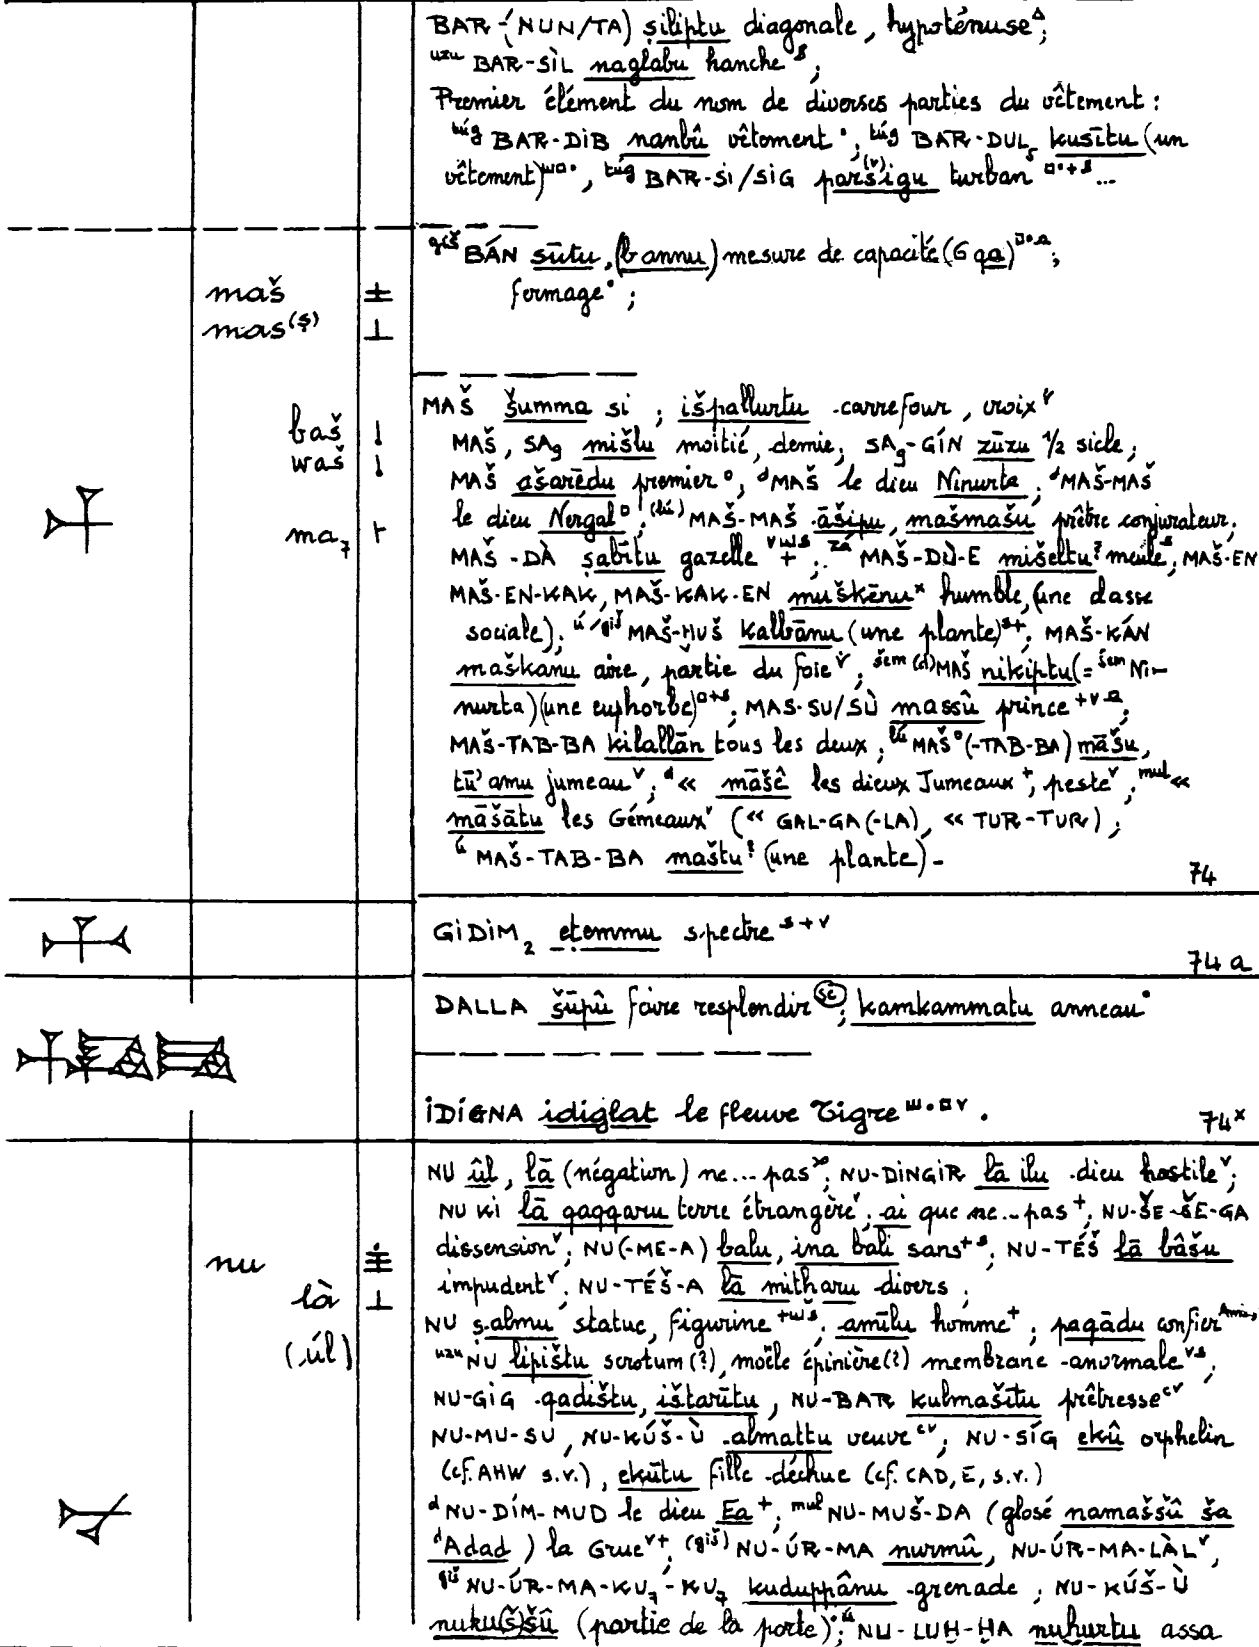 BAR-(NUN/TA) ṣiliptu diagonale, hypoténuse ;
uzu BAR-SÌL naglabu hanche s ;
Premier élément du nom de diverses parties du vêtement :
túg BAR-DIB nanbû vêtement °, túg BAR-DUL5 kusītu (un
vêtement) , túg BAR-SI/SIG parši(v)gu turban ...
giš BÁN sūtu, (bannu) mesure de capacité (6 qa) ;
fermage ° ;
maš ±
mas(ṣ) ⊥
MAŠ šumma si ; išpallurtu carrefour, croix v
baš
MAŠ, SA9 mišlu moitié, demie ; SA9-GÍN zūzu 1/2 sicle ;
waš
MAŠ ašarēdu premier °, dMAŠ le dieu Ninurta ; dMAŠ-MAŠ
ma7 le dieu Nergal ; (lú) MAŠ-MAŠ āšipu, mašmašu prêtre conjurateur,
MAŠ-DÀ ṣabītu gazelle ; zá MAŠ-DÙ-E mišeltu? meule s, MAŠ-EN
MAŠ-EN-KAK, MAŠ-KAK-EN muškēnu x humble, (une classe
sociale) ; ú/giš MAŠ-HUŠ kalbānu (une plante) s+ ; MAŠ-KÁN
maškanu aire, partie du foie v ; šem (d)MAŠ nikiptu (= šem Ni-
nurta) (une euphorbe) ; MAS-SU/SÙ massû prince ;
MAŠ-TAB-BA kilallān tous les deux ; lú MAŠ° (-TAB-BA) māšu,
tū'amu jumeau v ; d « māšê les dieux Jumeaux +, peste v ; mul «
māšātu les Gémeaux v (« GAL-GA(-LA), « TUR-TUR) ;
ú MAŠ-TAB-BA maštu? (une plante) -
74
GIDIM2 eṭemmu spectre s+v
74a
DALLA šūpû faire resplendir (sc) ; kamkammatu anneau °
IDIGNA idiglat le fleuve Tigre .
74x
NU ûl, lā (négation) ne... pas ; NU-DINGIR lā ilu dieu hostile v ;
NU KI lā qaqqaru terre étrangère v ; ai que ne... pas + ; NU-ŠE-ŠE-GA
dissension v ; NU(-ME-A) balu, ina bali sans +s ; NU-TÉŠ lā bâšu
nu
impudent v ; NU-TÉŠ-A lā mitharu divers ;
là ⊥
NU ṣalmu statue, figurine ; amīlu homme + ; paqādu confier Ama,
(úl)
uzu NU lipištu scrotum (?), moëlle épinière (?) membrane anormale vs ;
NU-GIG qadištu, ištarītu, NU-BAR kulmašītu prêtresse cv
NU-MU-SU, NU-KÚŠ-Ù almattu veuve cv ; NU-SÍG ekû orphelin
(cf. AHW s.v.), ekūtu fille déchue (cf. CAD, E, s.v.)
d NU-DÍM-MUD le dieu Ea + ; mul NU-MUŠ-DA (glosé namaššû ša
dAdad) la Grue v+ ; (giš) NU-ÚR-MA nurmû, NU-ÚR-MA-LÀL v,
giš NU-ÚR-MA-KU7-KU7 kuduppânu grenade ; NU-KÚŠ-Ù
nuku(š)šû (partie de la porte) ; ú NU-LUḪ-ḪA nuḫurtu assa